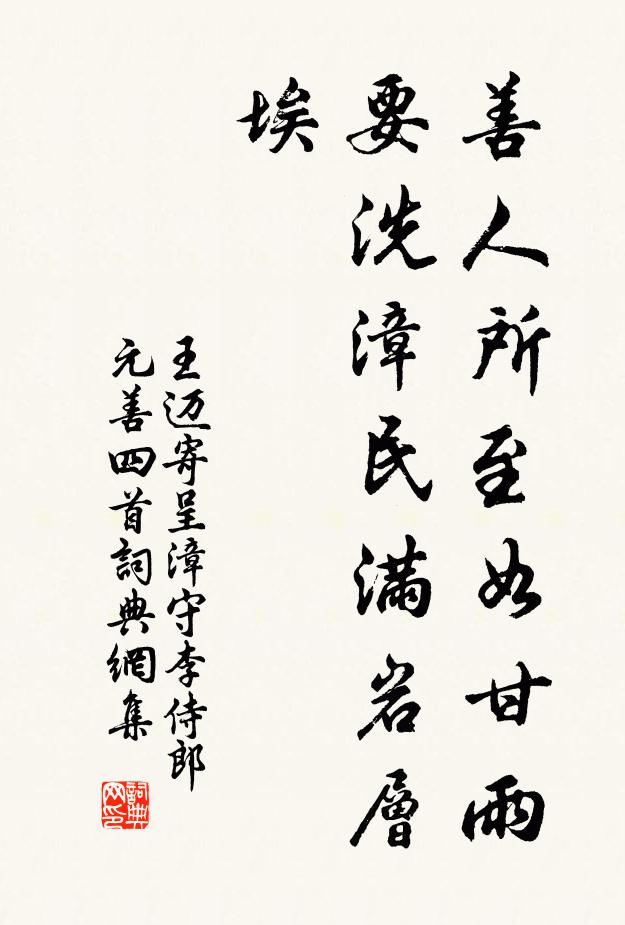 善人所至如甘雨
要洗漳民满岩層
埃
王迈寄呈漳守李侍郎
元善四首詞典網集
詞典网印